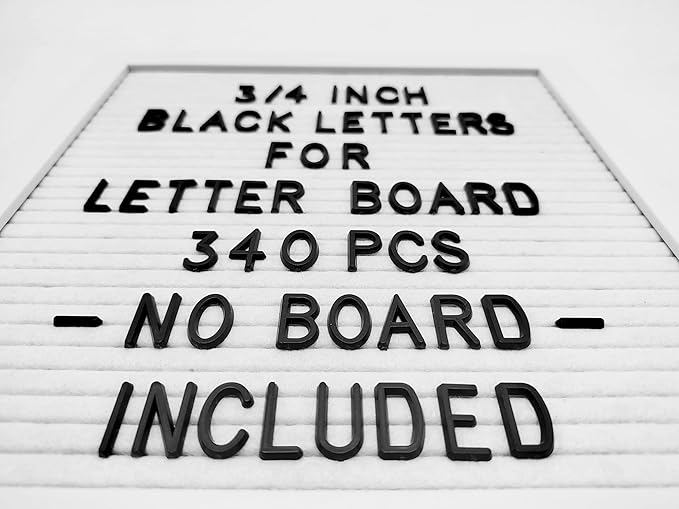 3/4 INCH
BLACK LETTERS
FOR
LETTER BOARD
340 PCS
- NO BOARD -
INCLUDED